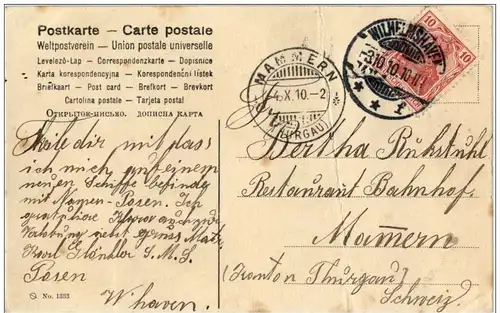 Postkarte – Carte postale
Weltpostverein – Union postale universelle
Levelező-Lap – Correspondenzkarte – Dopisnice
Karta korespondencyjna – Korespondenční lístek
Briefkaart – Post card – Brefkort – Brevkort
Cartolina postale – Tarjeta postal
Открытое-письмо. дописна карта
10 10
WILHELMSHAVEN
-3.10.10.10-11
* * f
MAMMERN
-4.X.10.-2
(THURGAU)
Teile dir mit dass
ich mich auf einem
neuen Schiffe befinde
mit Namen Posen. Ich
gratuliere
nebst gruss Matr.
Karl S.M.S.
Posen
W'haven.
Bertha Ruhstuhl
Restaurant Bahnhof.
Mamern
(Kanton Thurgau)
Schweiz.
S. No. 1333